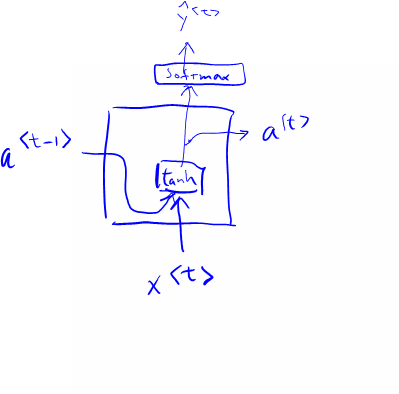 ŷ<t>
softmax
a<t-1>
a<t>
tanh
x<t>